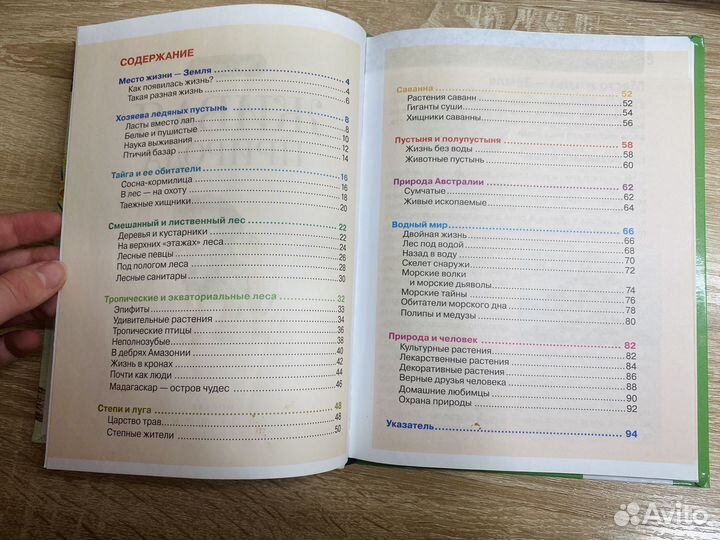 СОДЕРЖАНИЕ
Место жизни — Земля 4
Как появилась жизнь? 4
Такая разная жизнь 6
Хозяева ледяных пустынь 8
Ласты вместо лап 8
Белые и пушистые 10
Наука выживания 12
Птичий базар 14
Тайга и ее обитатели 16
Сосна-кормилица 16
В лес — на охоту 18
Таежные хищники 20
Смешанный и лиственный лес 22
Деревья и кустарники 22
На верхних "этажах" леса 24
Лесные певцы 26
Под пологом леса 28
Лесные санитары 30
Тропические и экваториальные леса 32
Эпифиты 33
Удивительные растения 34
Тропические птицы 36
Неполнозубые 38
В дебрях Амазонии 40
Жизнь в кронах 42
Почти как люди 44
Мадагаскар — остров чудес 46
Степи и луга 48
Царство трав 48
Степные жители 50
Саванна 52
Растения саванн 52
Гиганты суши 54
Хищники саванны 56
Пустыня и полупустыня 58
Жизнь без воды 58
Животные пустынь 60
Природа Австралии 62
Сумчатые 62
Живые ископаемые 64
Водный мир 66
Двойная жизнь 66
Лес под водой 68
Назад в воду 70
Скелет снаружи 72
Морские волки
и морские дьяволы 74
Морские тайны 76
Обитатели морского дна 78
Полипы и медузы 80
Природа и человек 82
Культурные растения 82
Лекарственные растения 84
Декоративные растения 86
Верные друзья человека 88
Домашние любимцы 90
Охрана природы 92
Указатель 94
Avito